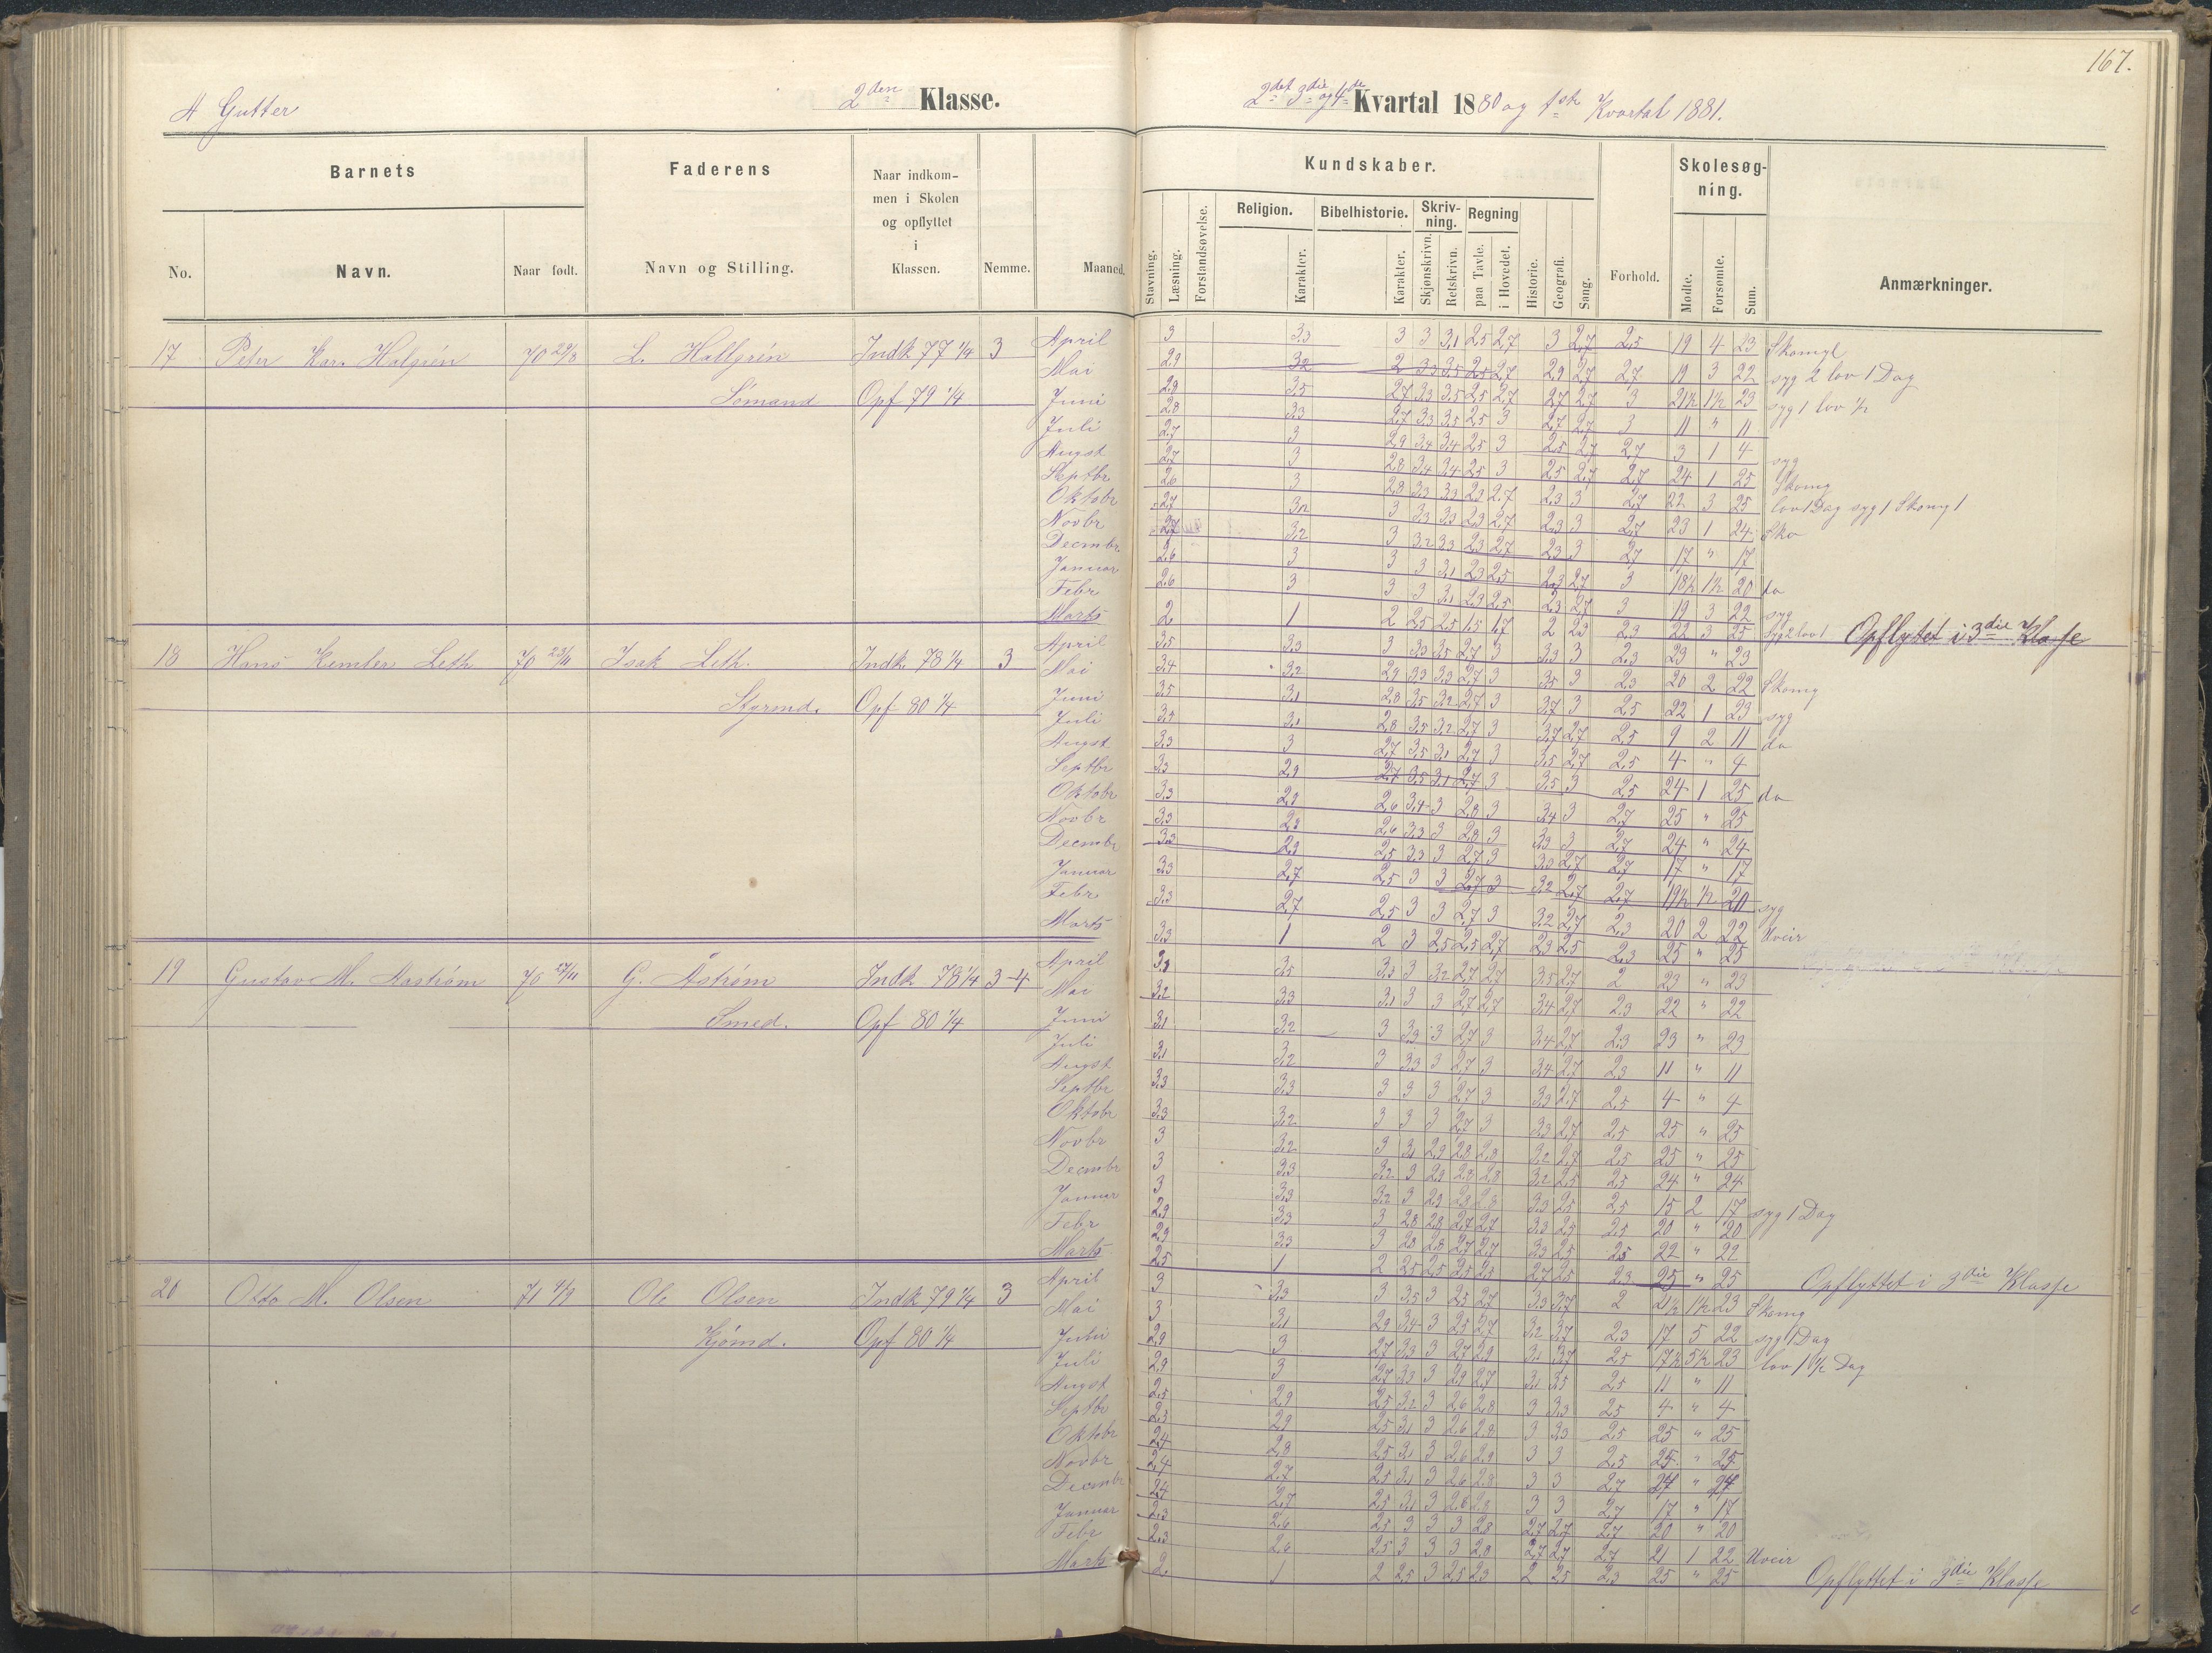 167.
A Gutter
2den Klasse.
2det 3die og 4de Kvartal 1880 og 1ste Kvartal 1881.
Barnets
Faderens
Naar indkom-
men i Skolen
og opflyttet
i
Klassen.
No.
Navn.
Naar født.
Navn og Stilling.
Nemme.
Maaned.
Kundskaber.
Skolesøg-
ning.
Stavning.
Læsning.
Forstandsøvelse.
Religion.
Karakter.
Bibelhistorie.
Karakter.
Skriv-
ning.
Skjønskrivn.
Retskrivn.
Regning
paa Tavle.
i Hovedet.
Historie.
Geografi.
Sang.
Forhold.
Mødte.
Forsømte.
Sum.
Anmærkninger.
17 Peter Kar. Halgrén 70 29/8 L. Hallgrén Indk 77 1/4 3 April 3 3,3 3 3 3,1 2,5 2,7 3 2,7 2,5 19 4 23 Skomgl
Mai 2,9 3,2 2 3,3 3,5 2,5 2,7 2,9 2,7 2,7 19 3 22 syg 2 lov 1 Dag
Sømand Opf 79 1/4 Juni 2,9 3,5 2,7 3,3 3,5 2,5 2,7 2,7 2,7 3 21½ 1½ 23 syg 1 lov ½
Juli 2,8 3,3 2,7 3,3 3,5 2,5 3 2,7 2,7 3 11 " 11
Augst 2,7 3 2,9 3,4 3,4 2,5 3 2,5 2,7 2,7 3 1 4 syg
Septbr 2,7 3 2,8 3,4 3,4 2,5 3 2,5 2,7 2,7 24 1 25 Skomg
Oktobr 2,6 3 2,8 3,3 3,3 2,3 2,7 2,3 3 2,7 22 3 25 lov 1 Dag syg 1 Skomg 1
Novbr 2,7 3,2 3 3,3 3,3 2,3 2,7 2,3 3 2,7 23 1 24 Sko
Decmbr 2,7 3,2 3 3,2 3,3 2,3 2,7 2,3 3 2,7 17 " 17
Januar 2,6 3 3 3 3,1 2,3 2,5 2,3 2,7 3 18½ 1½ 20 do
Febr 2,6 3 3 3 3,1 2,3 2,5 2,3 2,7 3 19 3 22 syg
Marts 2 1 2 2,5 2,5 1,5 1,7 2 2,3 2,3 22 3 25 syg 2 lov 1 Opflytet i 3die Klasse
18 Hans Kemler Leth 70 23/11 Isak Leth. Indk. 78 1/4 3 April 3,5 3,3 3 3,3 3,5 2,7 3 3,3 3 2,3 23 " 23
Mai 3,4 3,2 2,9 3,3 3,3 2,7 3 3,5 3 2,3 20 2 22 Skomg
Styrmd. Opf 80 1/4 Juni 3,5 3,1 2,8 3,5 3,2 2,7 3 3,7 3 2,5 22 1 23 syg
Juli 3,4 3,1 2,8 3,5 3,2 2,7 3 3,7 2,7 2,5 9 2 11 do
Augst 3,3 3 2,7 3,5 3,1 2,7 3 3,5 2,7 2,5 4 " 4
Septbr 3,3 2,9 2,7 3,5 3,1 2,7 3 3,5 3 2,5 24 1 25 do
Oktobr 3,3 2,9 2,6 3,4 3 2,8 3 3,4 3 2,7 25 " 25
Novbr 3,3 2,9 2,6 3,3 3 2,8 3 3,3 3 2,7 24 " 24
Decmbr 3,3 2,9 2,5 3,3 3 2,7 3 3,3 2,7 2,7 17 " 17
Januar 3,3 2,7 2,5 3 3 2,7 3 3,2 2,7 2,7 19½ ½ 20 syg
Febr 3,3 2,7 2,5 3 3 2,7 3 3,2 2,7 2,3 20 2 22 Uveir
Marts 3,3 1 2 3 2,5 2,5 2,7 2,3 2,5 2,3 25 " 25
19 Gustav M. Aastrøm 70 27/11 G. Åstrøm Indk 78 1/4 3-4 April 3,3 3,5 3,3 3 3,2 2,7 2,7 3,5 2,7 2 23 " 23
Mai 3,2 3,3 3,1 3 3 2,7 2,7 3,4 2,7 2,3 22 " 22
Smed. Opf 80 1/4 Juni 3,1 3,2 3 3,3 3 2,7 3 3,4 2,7 2,3 23 " 23
Juli 3,1 3,2 3 3,3 3 2,7 3 3,4 2,7 2,3 11 " 11
Augst 3,3 3,3 3 3 3 2,7 3 3,3 2,7 2,5 4 " 4
Septbr 3,3 3,2 3 3 3 2,7 3 3,3 2,7 2,5 25 " 25
Oktobr 3 3,2 3 3,1 2,9 2,8 2,8 3,2 2,7 2,5 25 " 25
Novbr 3 3,3 3,2 3 2,9 2,8 2,8 3,2 2,5 2,5 24 " 24
Decmbr 3 3,3 3,2 3 2,9 2,8 2,8 3,3 2,5 2,5 15 2 17 syg 1 Dag
Januar 2,9 3,3 3 2,8 2,8 2,7 2,7 3,3 2,5 2,5 20 " 20
Febr 2,9 3,3 3 2,8 2,8 2,7 2,7 3,3 2,5 2,5 22 " 22
Marts 2,5 1 2 2,5 2,5 2,5 2,5 2,7 2,5 2,3 25 " 25 Opflyttet i 3die Klasse
20 Otto M. Olsen 71 4/9 Ole Olsen Indk 79 1/4 3 April 3 3,3 3 3,5 3 2,5 2,7 3,3 3,7 2 21½ 1½ 23 Skomg
Mai 3 3,1 2,9 3,4 3 2,5 2,7 3,2 3,7 2,3 17 5 22 syg 1 Dag
Kjømd. Opf 80 1/4 Juni 2,9 3 2,7 3,3 3 2,7 2,9 3,1 3,7 2,5 17½ 5½ 23 lov 1 ½ Dag
Juli 2,9 3 2,7 3,3 3 2,9 2,7 3,1 3,5 2,5 11 " 11
Augst 2,5 2,9 2,5 3,2 3 2,6 2,8 3 3,3 2,5 4 " 4
Septbr 2,5 2,9 2,5 3,1 3 2,6 2,8 3 3,3 2,5 25 " 25
Oktobr 2,4 2,8 2,5 3,1 3 2,6 2,9 3 3 2,5 25 " 25
Novbr 2,4 2,7 2,5 3,1 3 2,6 2,8 3 3 2,7 24 " 24
Decmbr 2,4 2,7 2,5 3,1 3 2,6 2,8 3 3 2,7 17 " 17
Januar 2,3 2,6 2,5 3 3 3 2,8 2,7 2,7 2,7 20 " 20
Febr 2,3 2,6 2,5 3 3 3 2,8 2,7 2,7 2,7 21 1 22 Uveir
Marts 2, 1 2 2,5 3 2,5 2,3 2 2,5 2,3 25 " 25 Opflyttet i 3die Klasse